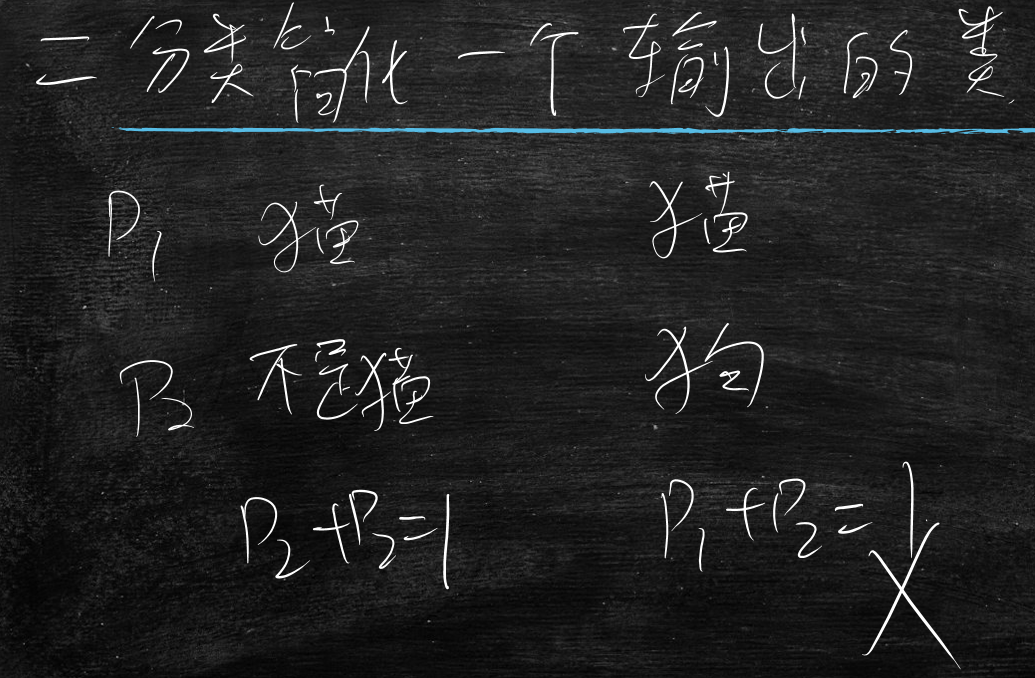 二分类简化一个输出的类
P₁ 猫 猫
P₂ 不是猫 狗
P₂+P₂=1 P₁+P₂=1 X